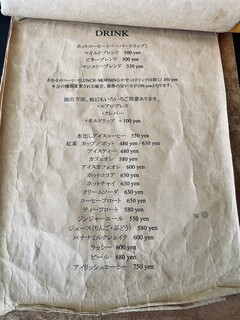 DRINK
ホットコーヒー(ペーパードリップ)
マイルドブレンド 500 yen
ビターブレンド 500 yen
マンスリーブレンド 530 yen
おかわりコーヒー(LUNCH・MORNINGのセットドリンクは除く) 300 yen
抽出方法、他にもいろいろご用意あります。
・エアロプレス
・クレバー
・ネルドリップ +100 yen
水出しアイスコーヒー 550 yen
紅茶 カップ／ポット 480 yen / 630 yen
アイスティー 480 yen
カフェオレ 580 yen
アイスカフェオレ 600 yen
ホットココア 630 yen
ホットチャイ 630 yen
クリームソーダ 630 yen
コーヒーフロート 650 yen
ティーフロート 580 yen
ジンジャーエール 550 yen
ジュース(りんご・ぶどう) 580 yen
バナナミルクシェイク 640 yen
ラッシー 600 yen
ビール 680 yen
アイリッシュコーヒー 750 yen